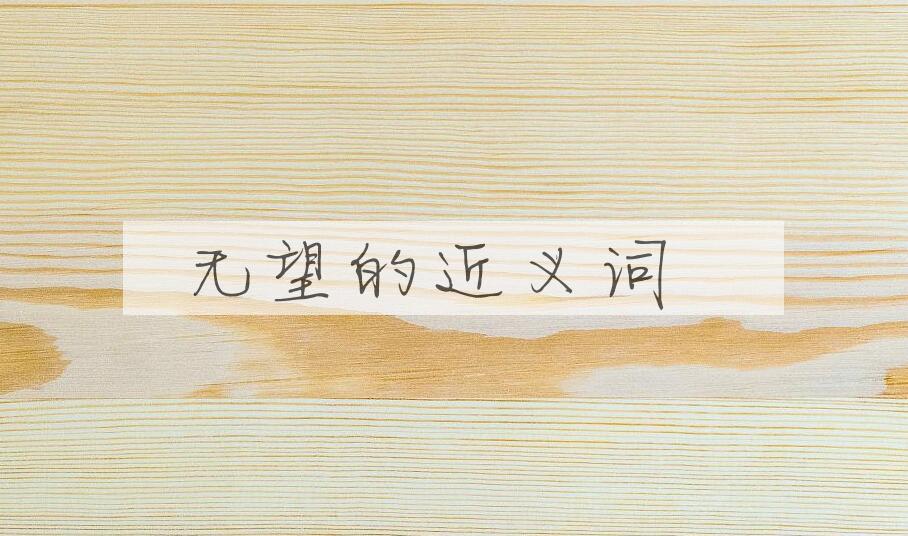 无望的近义词